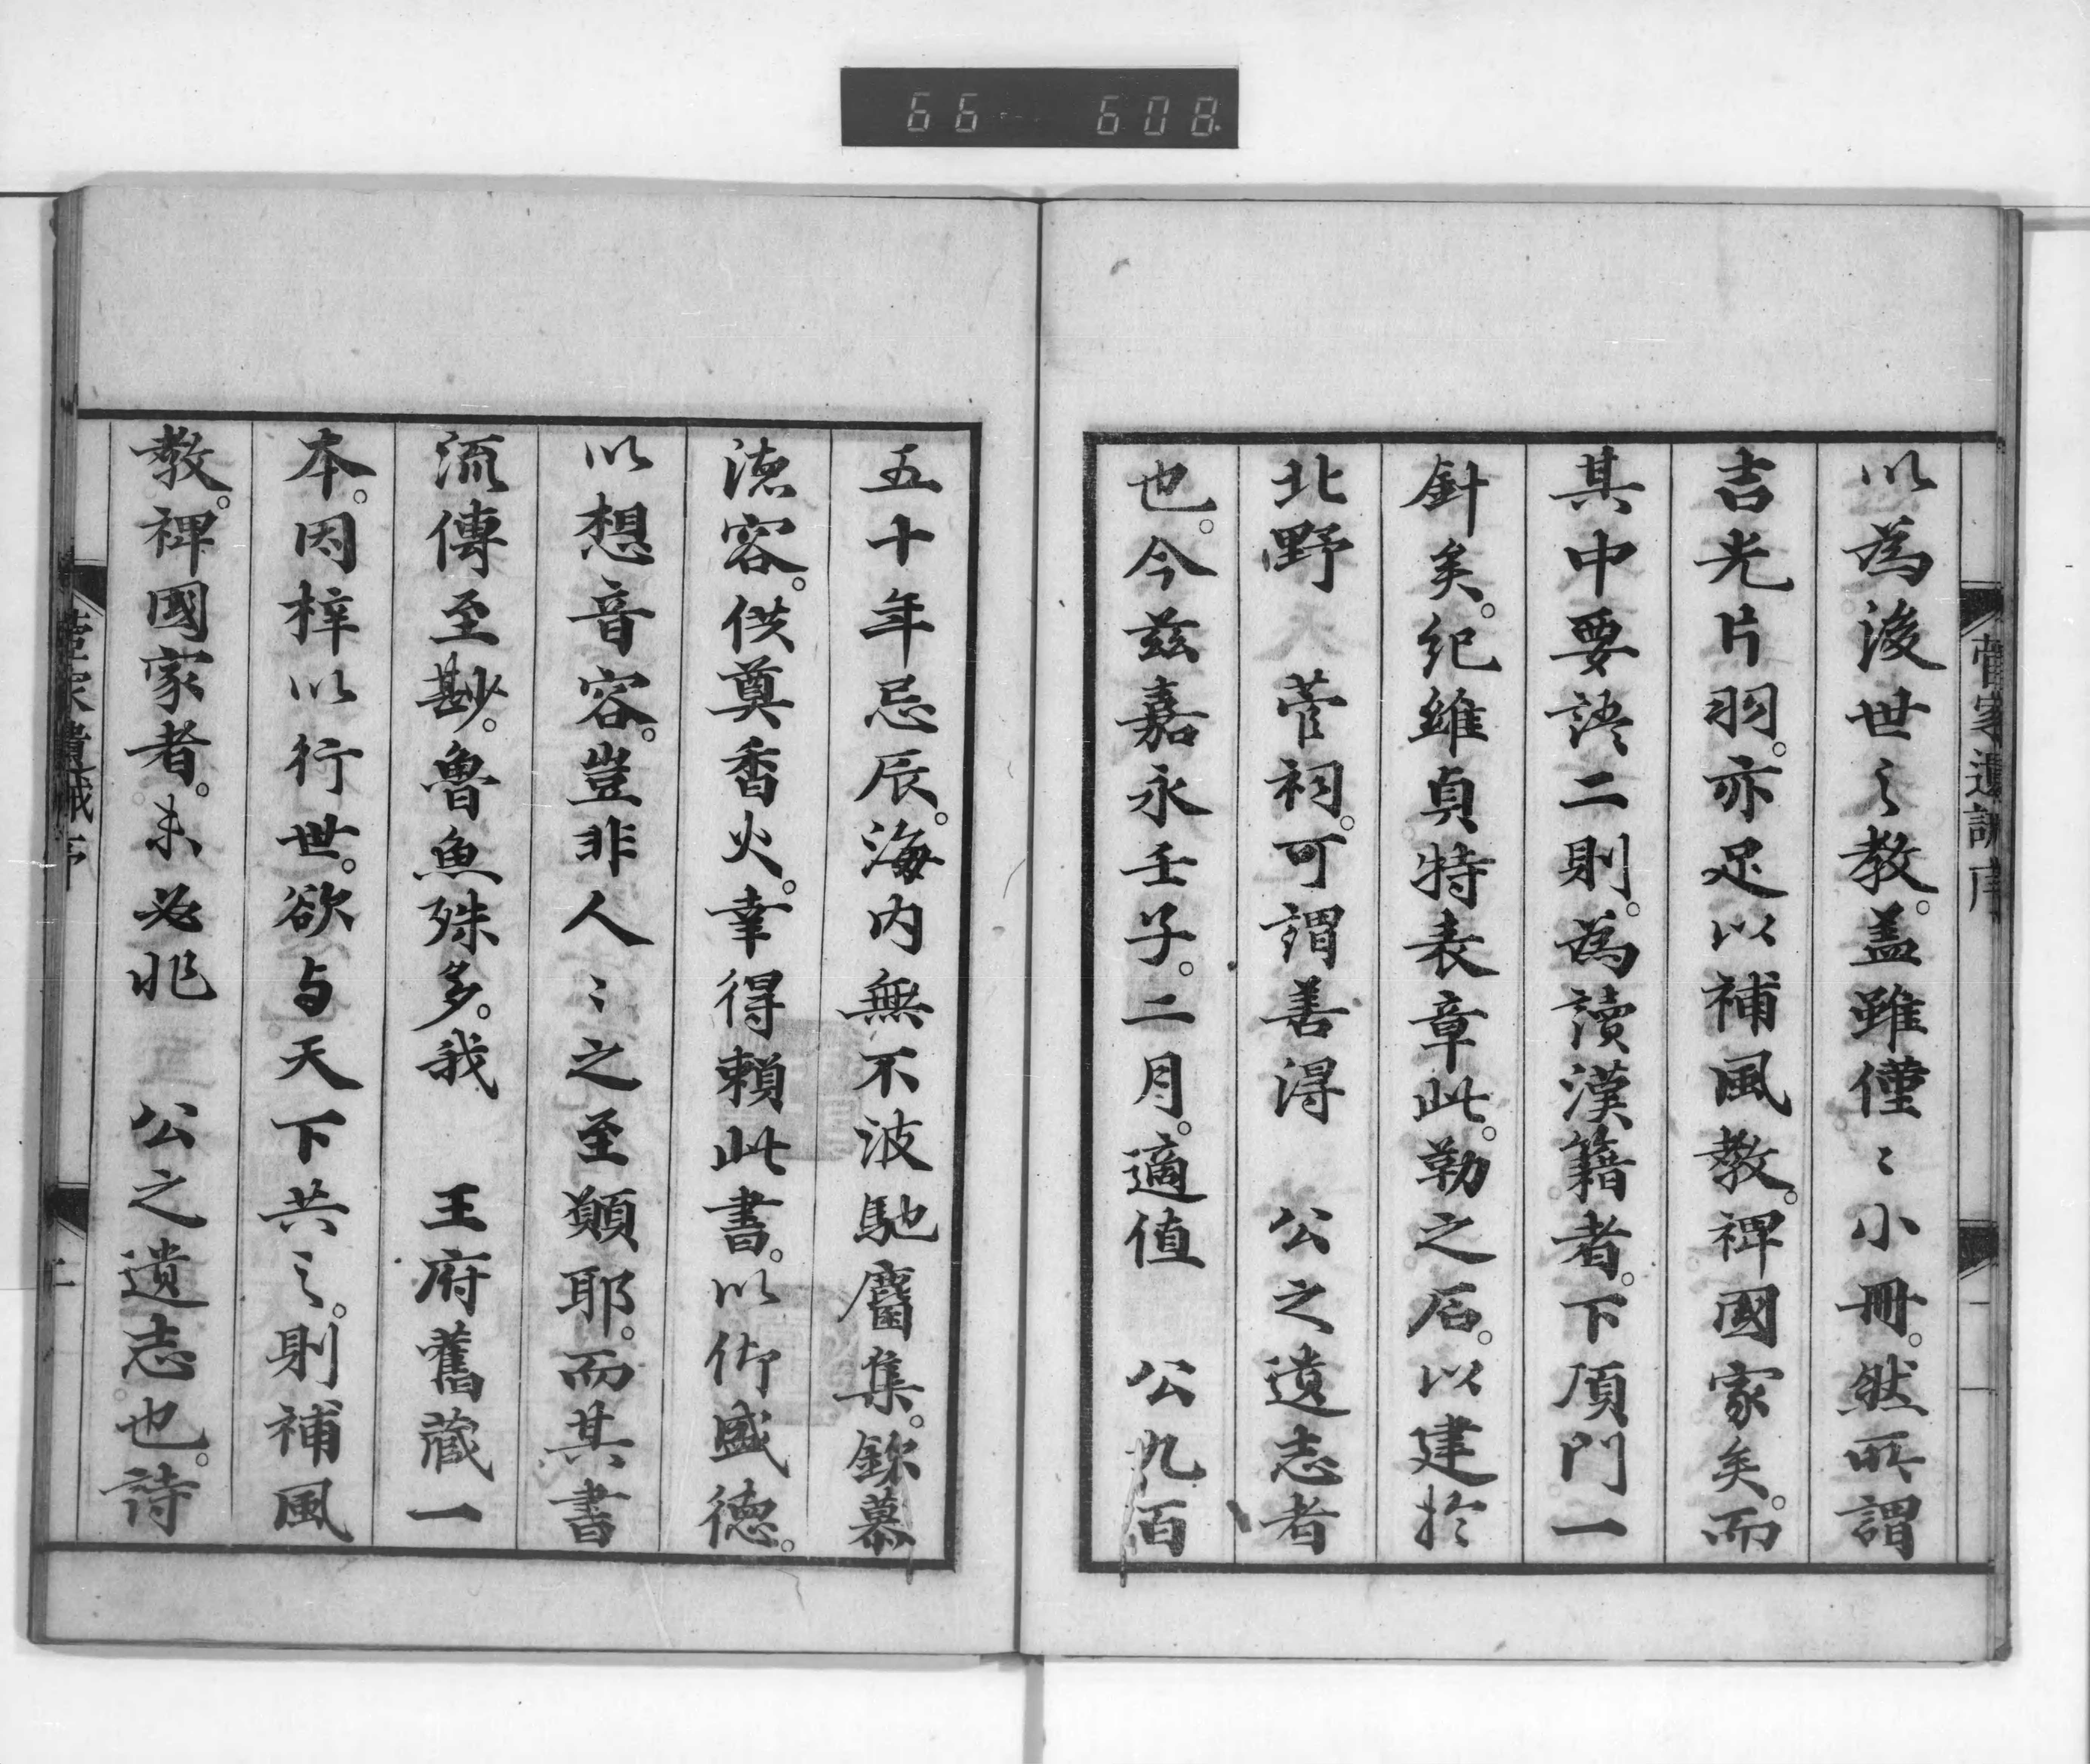 66 608
菅家遺誡序
以為後世之教。盖雖僅〻小冊。然所謂
吉光片羽。亦足以補風教。裨國家矣。而
其中要語二則。為讀漢籍者。下頂門一
針矣。紀維貞特表章此。勒之石。以建於
北野　菅祠。可謂善得　公之遺志者
也。今兹嘉永壬子。二月。適値　公九百
五十年忌辰。海内無不波馳麕集。欽慕
徳容。供奠香火。幸得頼此書。以仰盛徳。
以想音容。豈非人〻之至願耶。而其書
流傳至尠。魯魚殊多。我　王府舊蔵一
本。因梓以行世。欲与天下共之。則補風
教。裨國家者。未必非　公之遺志也。詩
菅家遺誡序
二